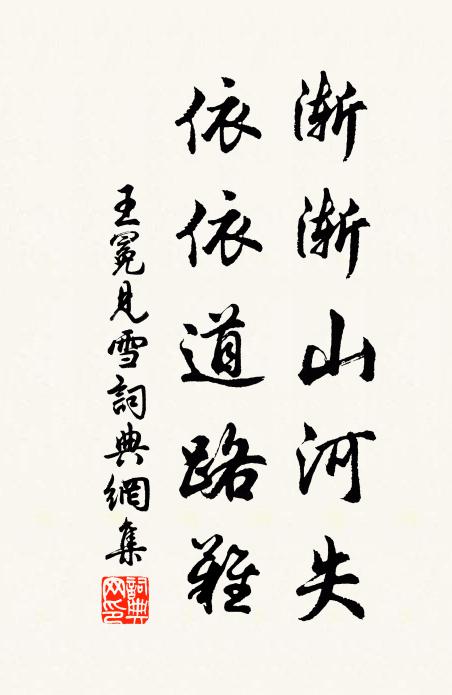 漸漸山河失
依依道路難
王冕見雪詞典網集
詞典網印